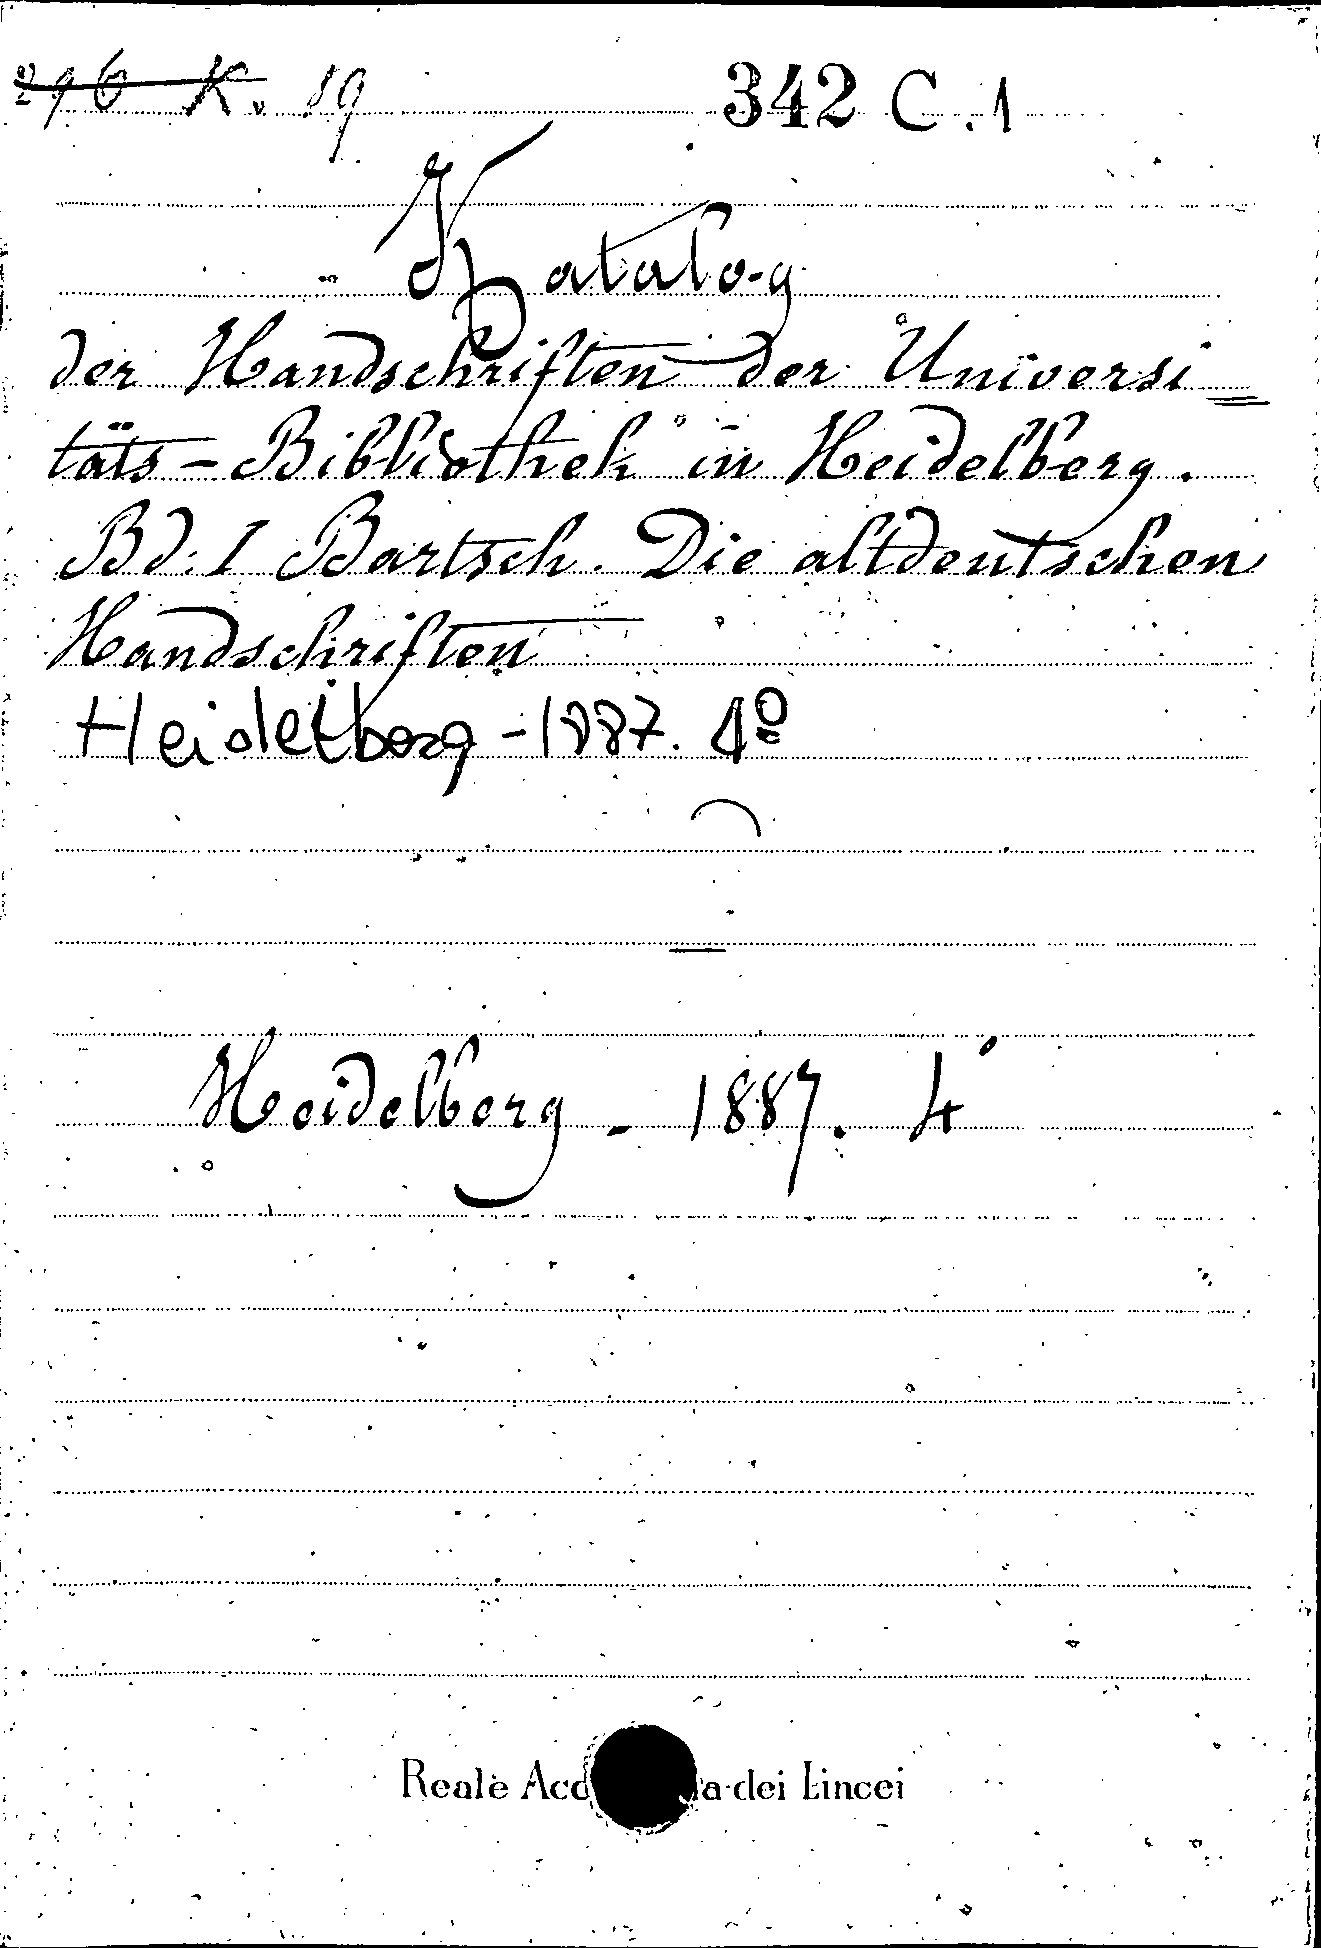 296 K. 19 342 C. 1
Katalog
der Handschriften der Universi=
täts-Bibliothek in Heidelberg.
Bd. I Bartsch. Die altdeutschen
Handschriften
Heidelberg - 1887. 4º
Heidelberg - 1887. 4º
Reale Acc a dei Lincei